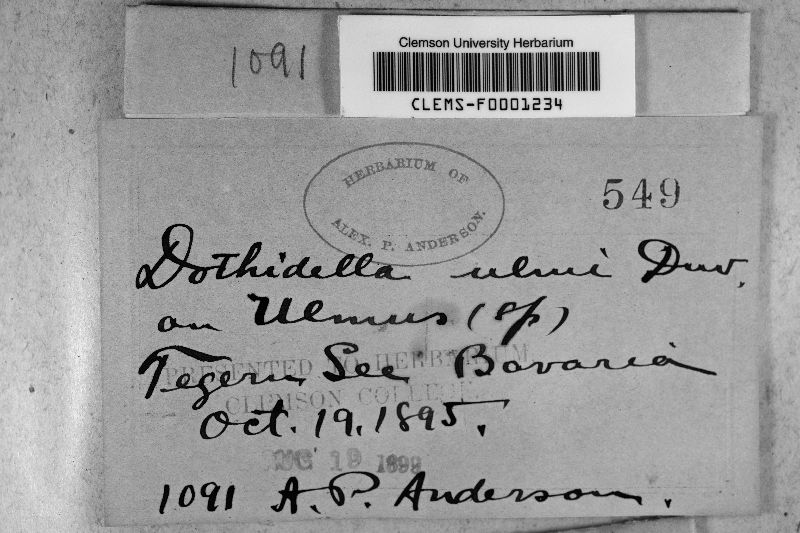 1091
Clemson University Herbarium
CLEMS-F0001234
HERBARIUM OF
ALEX. P. ANDERSON.
549
Dothidella ulmi Duv.
on Ulmus (sp)
Tegern See Bavaria
PRESENTED TO HERBARIUM
CLEMSON COLLEGE
Oct. 19, 1895.
AUG 19 1899
1091 A. P. Anderson.